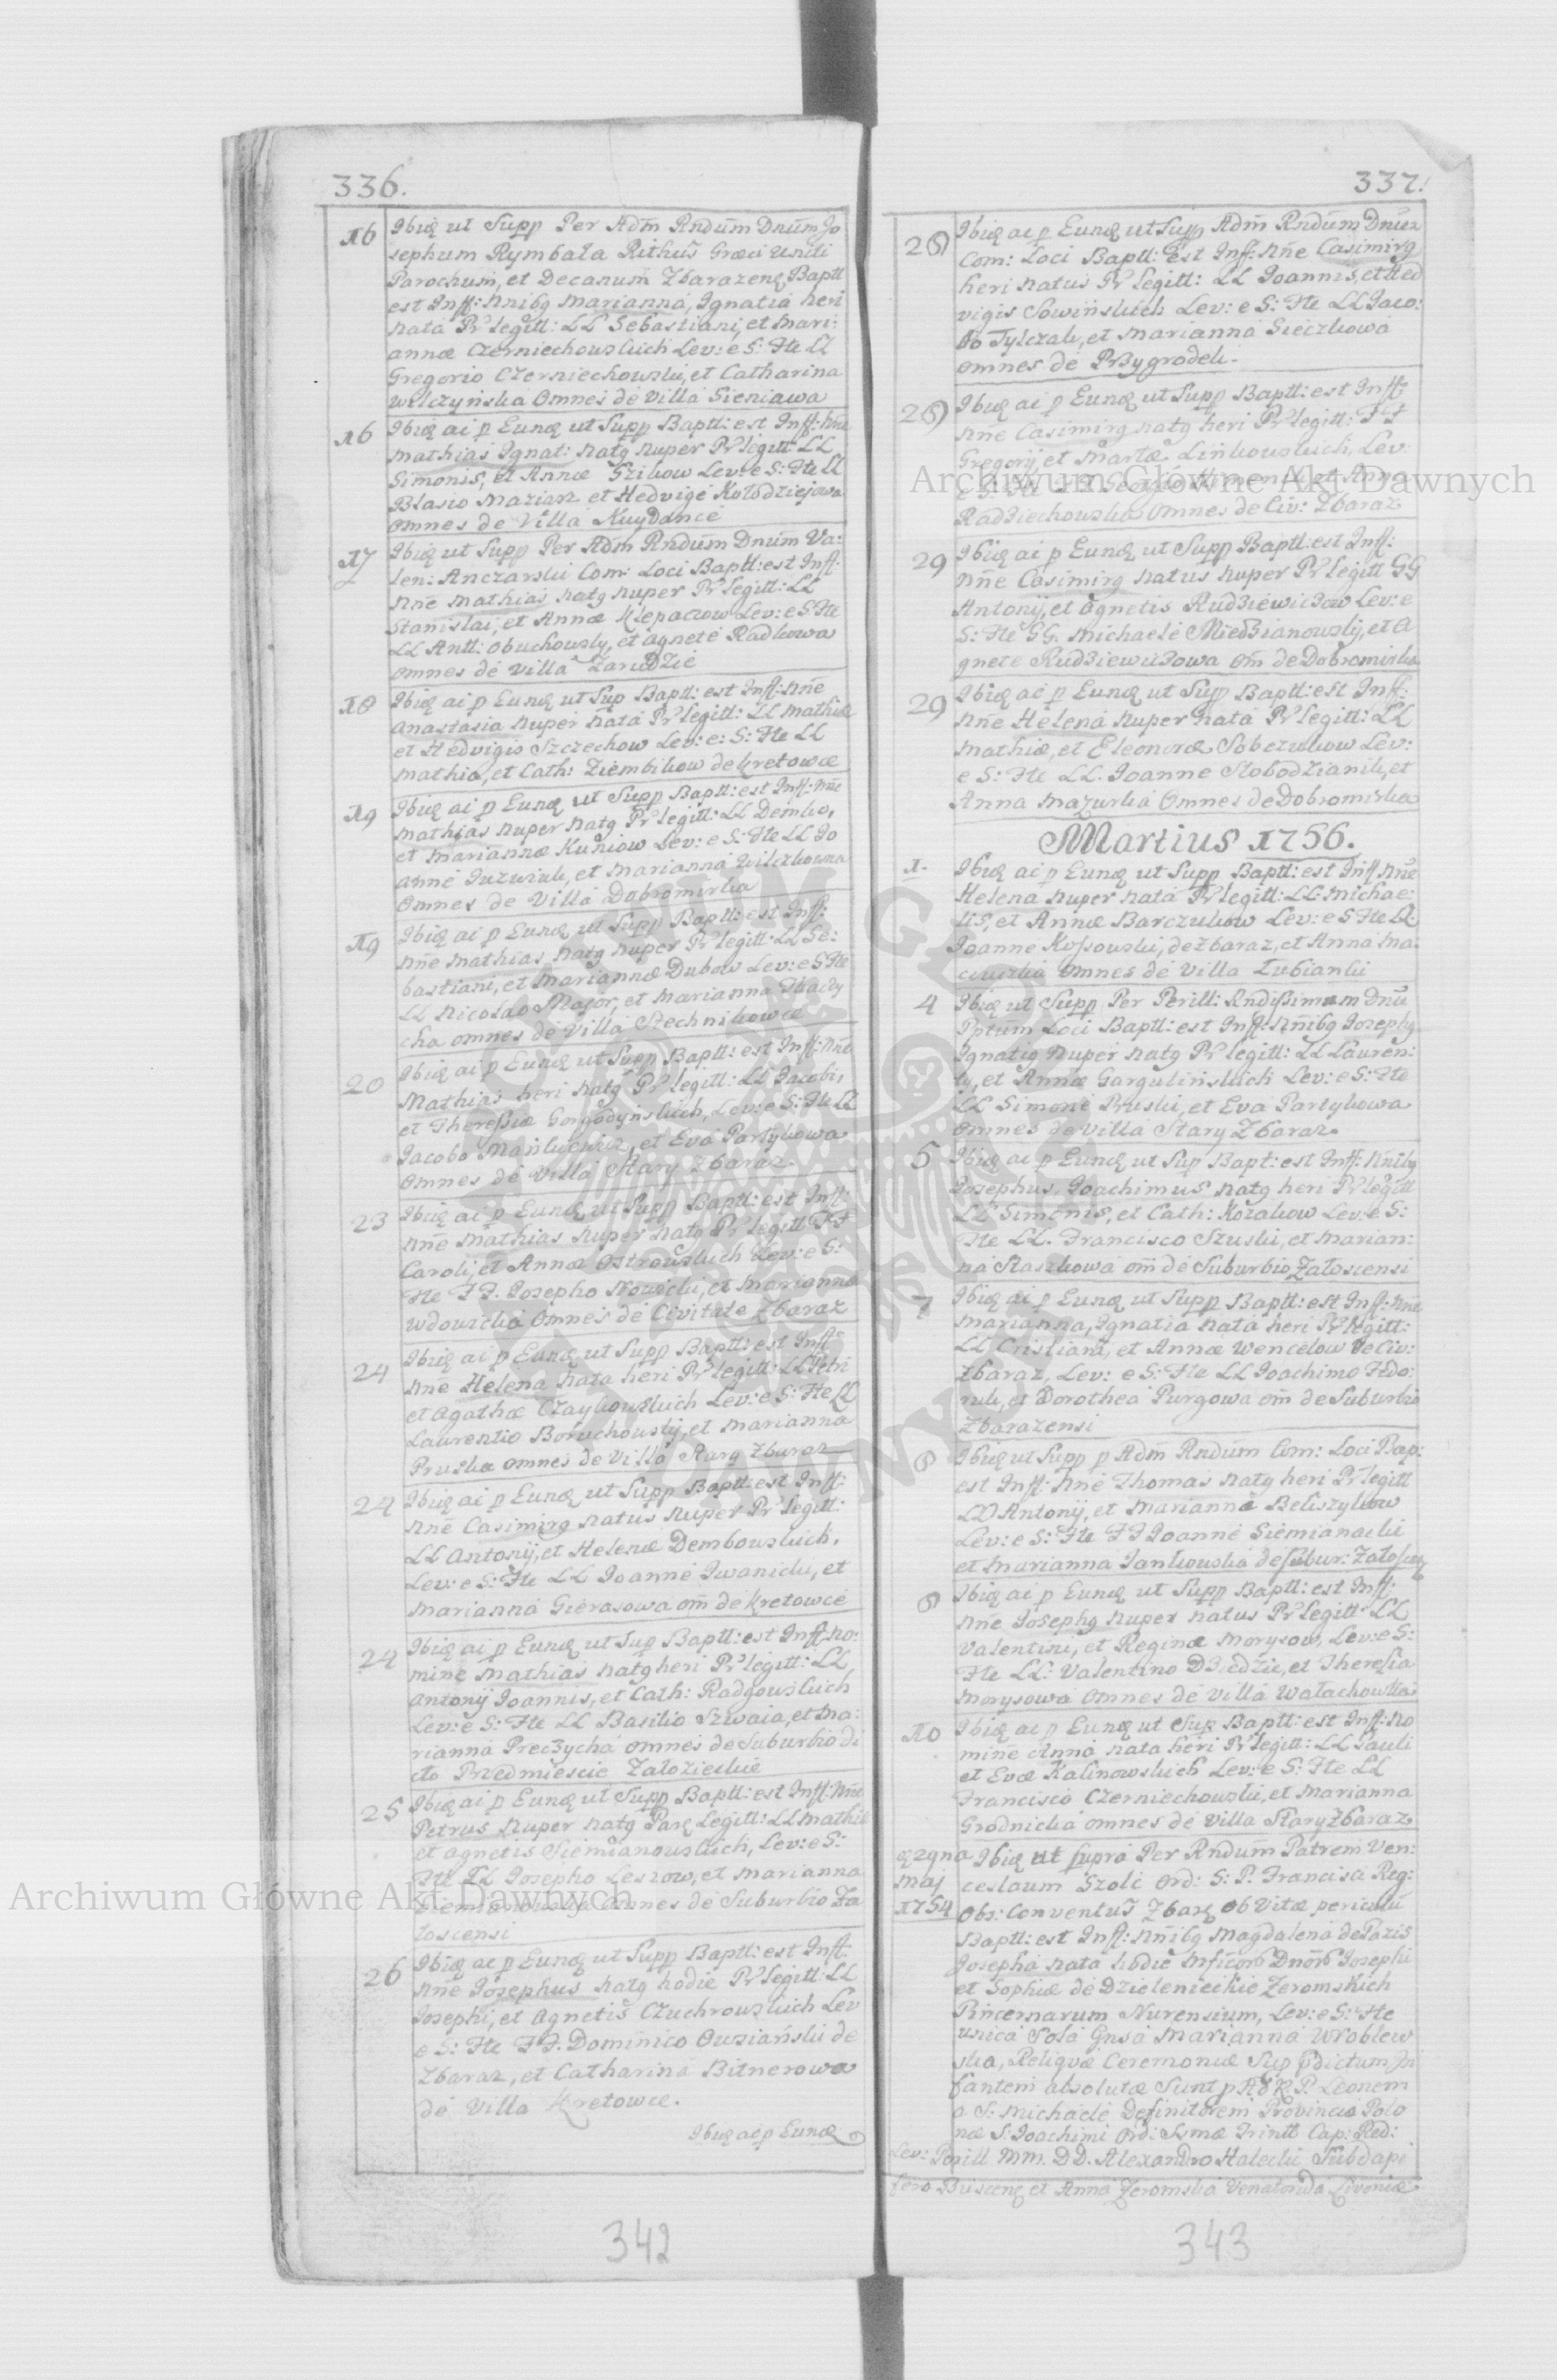 336.
16 Ibiq ut Supp Per Adm Rndum Dnum Jo
sephum Rymbala Rithus Graeci Uniti
Parochum, et Decanum Zbarazenq Baptt
est Inff: Nnibq Marianna, Ignatia heri
nata Pr legitt: LL Sebastiani, et Mari:
annae Czerniechowskich Lev: e S: Fte LL
Gregorio Czerniechowski, et Catharina
Wilczyńska Omnes de Villa Sieniawa
16 Ibiq ac p Eunq ut Supp Baptt: est Inff: Nne
Mathias Ignat: natq nuper Pr legitt: LL
Simonis, et Annae Gzikow Lev: e S: Fte LL
Blasio Maziarz et Hedvige Kołodziejowa
Omnes de Villa Kuydance
17 Ibiq ut Supp Per Adm Rndum Dnum Va:
len: Anczarski Com: Loci Baptt: est Inff:
Nne Mathias natq nuper Pr legitt: LL
Stanislai, et Annae Klepaczow Lev: e S: Fte
LL Antt: Obuchowsky, et Agnete Radkowa
Omnes de Villa Zarudzie
18 Ibiq ac p Eunq ut Sup Baptt: est Inff: Nne
Anastasia nuper nata Pr legitt: LL Mathiae
et Hedvigis Szczechow Lev: e: S: Fte LL
Mathia, et Cath: Ziembikow de Kretowce
19 Ibiq ac p Eunq ut Supp Baptt: est Inff: Nne
Mathias nuper natq Pr legitt: LL Demko,
et Mariannae Kuniow Lev: e S: Fte LL Jo
anne Juzwiak, et Marianna Wilczkowna
Omnes de Villa Dobromirka
19 Ibiq ac p Eunq ut Supp Baptt: est Inff:
Nne Mathias natq nuper Pr legitt: LL Se:
bastiani, et Mariannae Dubow Lev: e S Fte
LL Nicolao Major, et Marianna
cha omnes de Villa Stechnikowce
20 Ibiq ac p Eunq ut Supp Baptt: est Inff: Nne
Mathias heri natq Pr legitt: LL Jacobi,
et Theressiae Gorgodyńskich, Lev: e S: Fte LL
Jacobo Mankiewicz, et Eva Partykowa
Omnes de Villa Stary Zbaraz.
23 Ibiq ac p Eunq ut Supp Baptt: est Inff:
Nne Mathias nuper natq Pr legitt FF
Caroli, et Annae Ostrowskich Lev: e S:
Fte FF. Josepho Nowicki, et Marianna
Wdowska Omnes de Civitate Zbaraz
24 Ibiq ac p Eunq ut Supp Baptt: est Inff:
Nne Helena nata heri Pr legitt: LL Petri
et Agathae Czaykowskich Lev: e S: Fte LL
Laurentio Boruchowsky, et Marianna
Pruska omnes de Villa Stary Zbaraz
24 Ibiq ac p Eunq ut Supp Baptt: est Inff:
Nne Casimirq natus nuper Pr legitt:
LL Antonij, et Helenae Dembowskich,
Lev: e S: Fte LL Joanne Iwanicki, et
Marianna Gierasowa om de Kretowce
24 Ibiq ac p Eunq ut Sup Baptt: est Inff: No:
mine Mathias natq heri Pr legitt: LL
Antonij Joannis, et Cath: Radgowskich
Lev: e S: Fte LL Basilio Szwaia, et Ma:
rianna Preczycha omnes de Suburbio di
cto Przedmiescie Załozieckie
25 Ibiq ac p Eunq ut Supp Baptt: est Inff: Nne
Petrus nuper natq Parq Legitt: LL Mathiae
et Agnetis Siemianowskich, Lev: e S:
Fte LL Josepho Leszow, et Marianna
Siemianowska omnes de Suburbio Za
loscensi
26 Ibiq ac p Eunq ut Supp Baptt: est Inff:
Nne Josephus natq hodie Pr legitt: LL
Josephi, et Agnetis Czuchrowskich Lev
e S: Fte FF. Dominico Owsiański de
Zbaraz, et Catharina Bitnerowa
de Villa Kretowce.
Ibiq ac p Eunq
342
337.
28 Ibiq ac p Eunq ut Supp Adm Rndum Dnum
Com: Loci Baptt: Est Inff: Nne Casimirq
heri natus Pr Legitt: LL Joannis, et Hed
vigis Sowińskich Lev: e S: Fte LL Jaco:
bo Tylczak, et Marianna Sieczkowa
omnes de Przygrodek.
28 Ibiq ac p Eunq ut Supp Baptt: est Inff:
Nne Casimirq natq heri Pr legitt: FF
Gregorij, et Martae Linkowskich, Lev:
e S: Fte FF Georgio Kimen, et Anna
Radziechowska Omnes de Civ: Zbaraz
29 Ibiq ac p Eunq ut Supp Baptt: est Inff:
Nne Casimirq natus nuper Pr legitt GG
Antonij, et Agnetis Rudziewiczow Lev: e
S: Fte GG. Michaele Miedzianowsky, et A
gnete Rudziewiczowa om de Dobromirka
29 Ibiq ac p Eunq ut Supp Baptt: est Inff:
Nne Helena nuper nata Pr legitt: LL
Mathiae, et Eleonorae Sobczukow Lev:
e S: Fte LL. Joanne Slobodzianik, et
Anna Mazurka Omnes de Dobromirka
Martius 1756.
1. Ibiq ac p Eunq ut Supp Baptt: est Inff Nne
Helena nuper nata Pr legitt: LL: Michae:
lis, et Annae Barczukow Lev: e S Fte LL
Joanne Kossowski, de Zbaraz, et Anna Ma:
ciuszka omnes de Villa Łubianki
4 Ibiq ut Supp Per Perill: Rndissimum Dnu
Pptum Loci Baptt: est Inff: Nnibq Josephq
Ignatiq nuper natq Pr legitt: LL Lauren:
ty, et Annae Gargulińskich Lev: e S: Fte
LL Simone Pruski, et Eva Partykowa
omnes de Villa Stary Zbaraz.
5 Ibiq ac p Eunq ut Sup Bapt: est Inff: Nnibq
Josephus, Joachimus natq heri Pr legitt
LL Simonis, et Cath: Kozakow Lev: e S:
Fte LL. Francisco Szuski, et Marian:
na Staszkowa om de Suburbio Załoscensi
7 Ibiq ac p Eunq ut Supp Baptt: est Inff: Nne
Marianna, Ignatia nata heri Pr legitt:
LL Cristiani, et Annae Wencelow De Civ:
Zbaraz, Lev: e S: Fte LL Joachimo Fedo:
ruk, et Dorothea Purgowa om de Suburbio
Zbarazensi
8 Ibiq ut Supp p Adm Rndum Com: Loci Bap:
est Inff: Nne Thomas natq heri Pr legitt
LL Antonij, et Marianna Beliszykow
Lev: e S: Fte FF Joanne Siemianacki
et Marianna Jankowska de Subur: Załosczy
8 Ibiq ac p Eunq ut Supp Baptt: est Inff:
Nne Josephq nuper natus Pr legitt LL
Valentini, et Reginae Morysow, Lev: e S:
Fte LL: Valentino Dziedzic, et Theresia
Morysowa Omnes de Villa Walachowka
10 Ibiq ac p Eunq ut Sup Baptt: est Inff: No
mine Anna nata heri Pr legitt: LL Pauli
et Evae Kalinowskich Lev: e S: Fte LL
Francisco Czerniechowski, et Marianna
Grodnicka omnes de Villa Stary Zbaraz
29na Maj 1754 Ibiq ut supra Per Rndum Patrem Ven:
ceslaum Szolc Ord: S: P. Francisci Reg:
Obs: Conventus Zbarq Ob Vitae periculu
Baptt: est Inff: Nnibq Magdalena de Pazis
Josepha nata hodie Mficoru Dnoru Josephi
et Sophiae de Dzielenieckie Zeromskich
Pincernarum Nurensium, Lev: e S: Fte
unica Sola Gnsa Marianna Wroblew
ska, Reliquae Ceremoniae Sup pdictum In
fantem absolutae Sunt p Ad R P. Leonem
a S: Michaele Definitorem Provinciae Polo
nae S: Joachimi Ord: Ssmae Trinitt Cap: Red:
Lev: Perill MM. DD. Alexandro Halecki Subdapi
fero Buscenq et Anna Zeromska Venatorida Livoniae
343
Archiwum Główne Akt Dawnych
Archiwum Główne Akt Dawnych